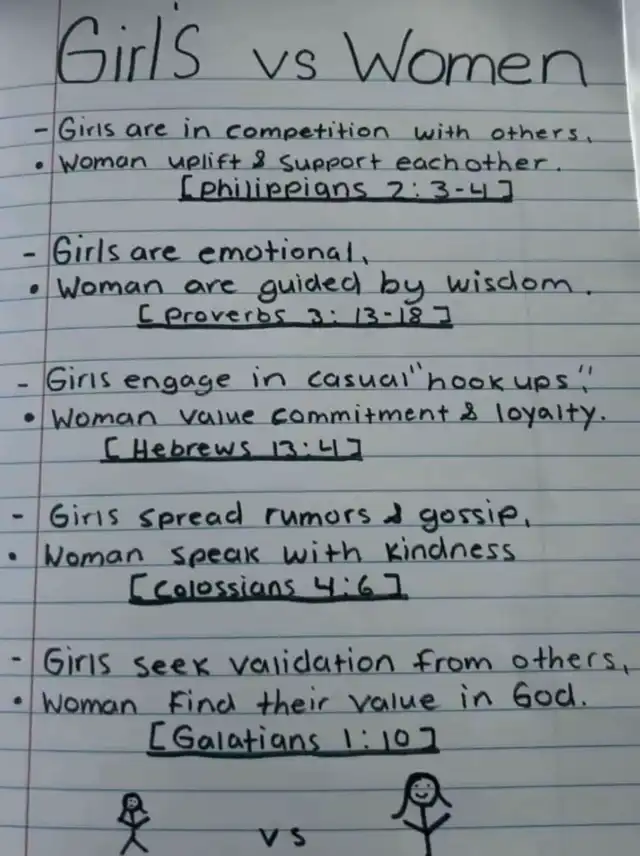 Girl's vs Women
- Girls are in competition with others.
• Woman uplift & support eachother.
[Philippians 2:3-4]
- Girls are emotional,
• Woman are guided by wisdom.
[Proverbs 3:13-18]
- Girls engage in casual "hook ups".
• Woman value commitment & loyalty.
[Hebrews 13:4]
- Girls spread rumors & gossip,
• Woman speak with kindness
[Colossians 4:6]
- Girls seek validation from others,
• Woman Find their value in God.
[Galatians 1:10]
vs